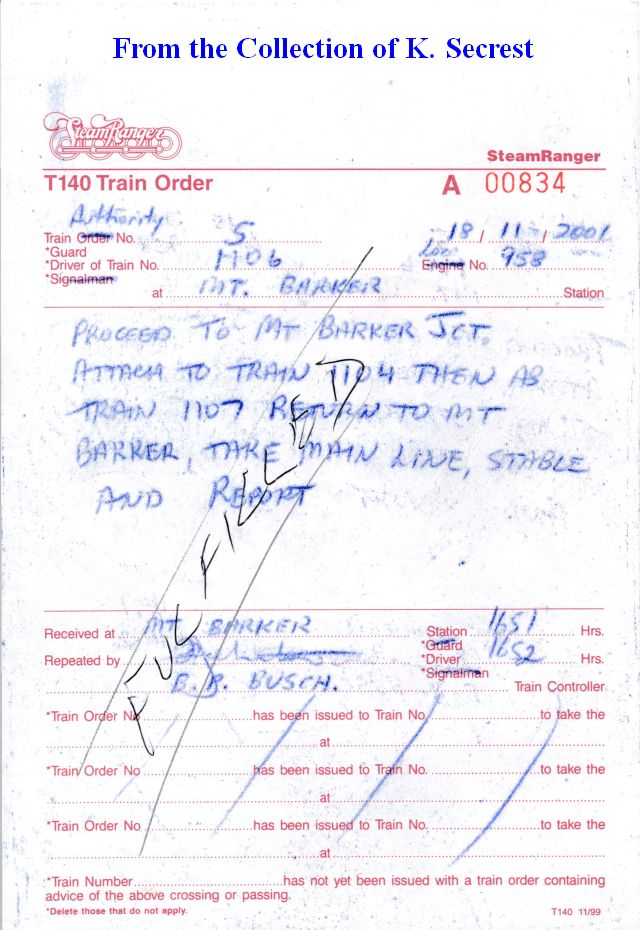 From the Collection of K. Secrest
SteamRanger
SteamRanger
T140 Train Order A 00834
Authority
Train Order No. 5 18 / 11 / 2001
*Guard
*Driver of Train No. 1106 Loco Engine No. 958
*Signalman
at MT. BARKER Station
PROCEED TO MT BARKER JCT.
ATTACH TO TRAIN 1104 THEN AS
TRAIN 1107 RETURN TO MT
BARKER, TAKE MAIN LINE, STABLE
AND REPORT
FULFILLED
Received at MT. BARKER Station 1651 Hrs.
*Guard
Repeated by *Driver 1652 Hrs.
*Signalman
B. R. BUSCH. Train Controller
*Train Order No has been issued to Train No. to take the
at
*Train Order No has been issued to Train No. to take the
at
*Train Order No has been issued to Train No. to take the
at
*Train Number has not yet been issued with a train order containing
advice of the above crossing or passing.
*Delete those that do not apply. T140 11/99